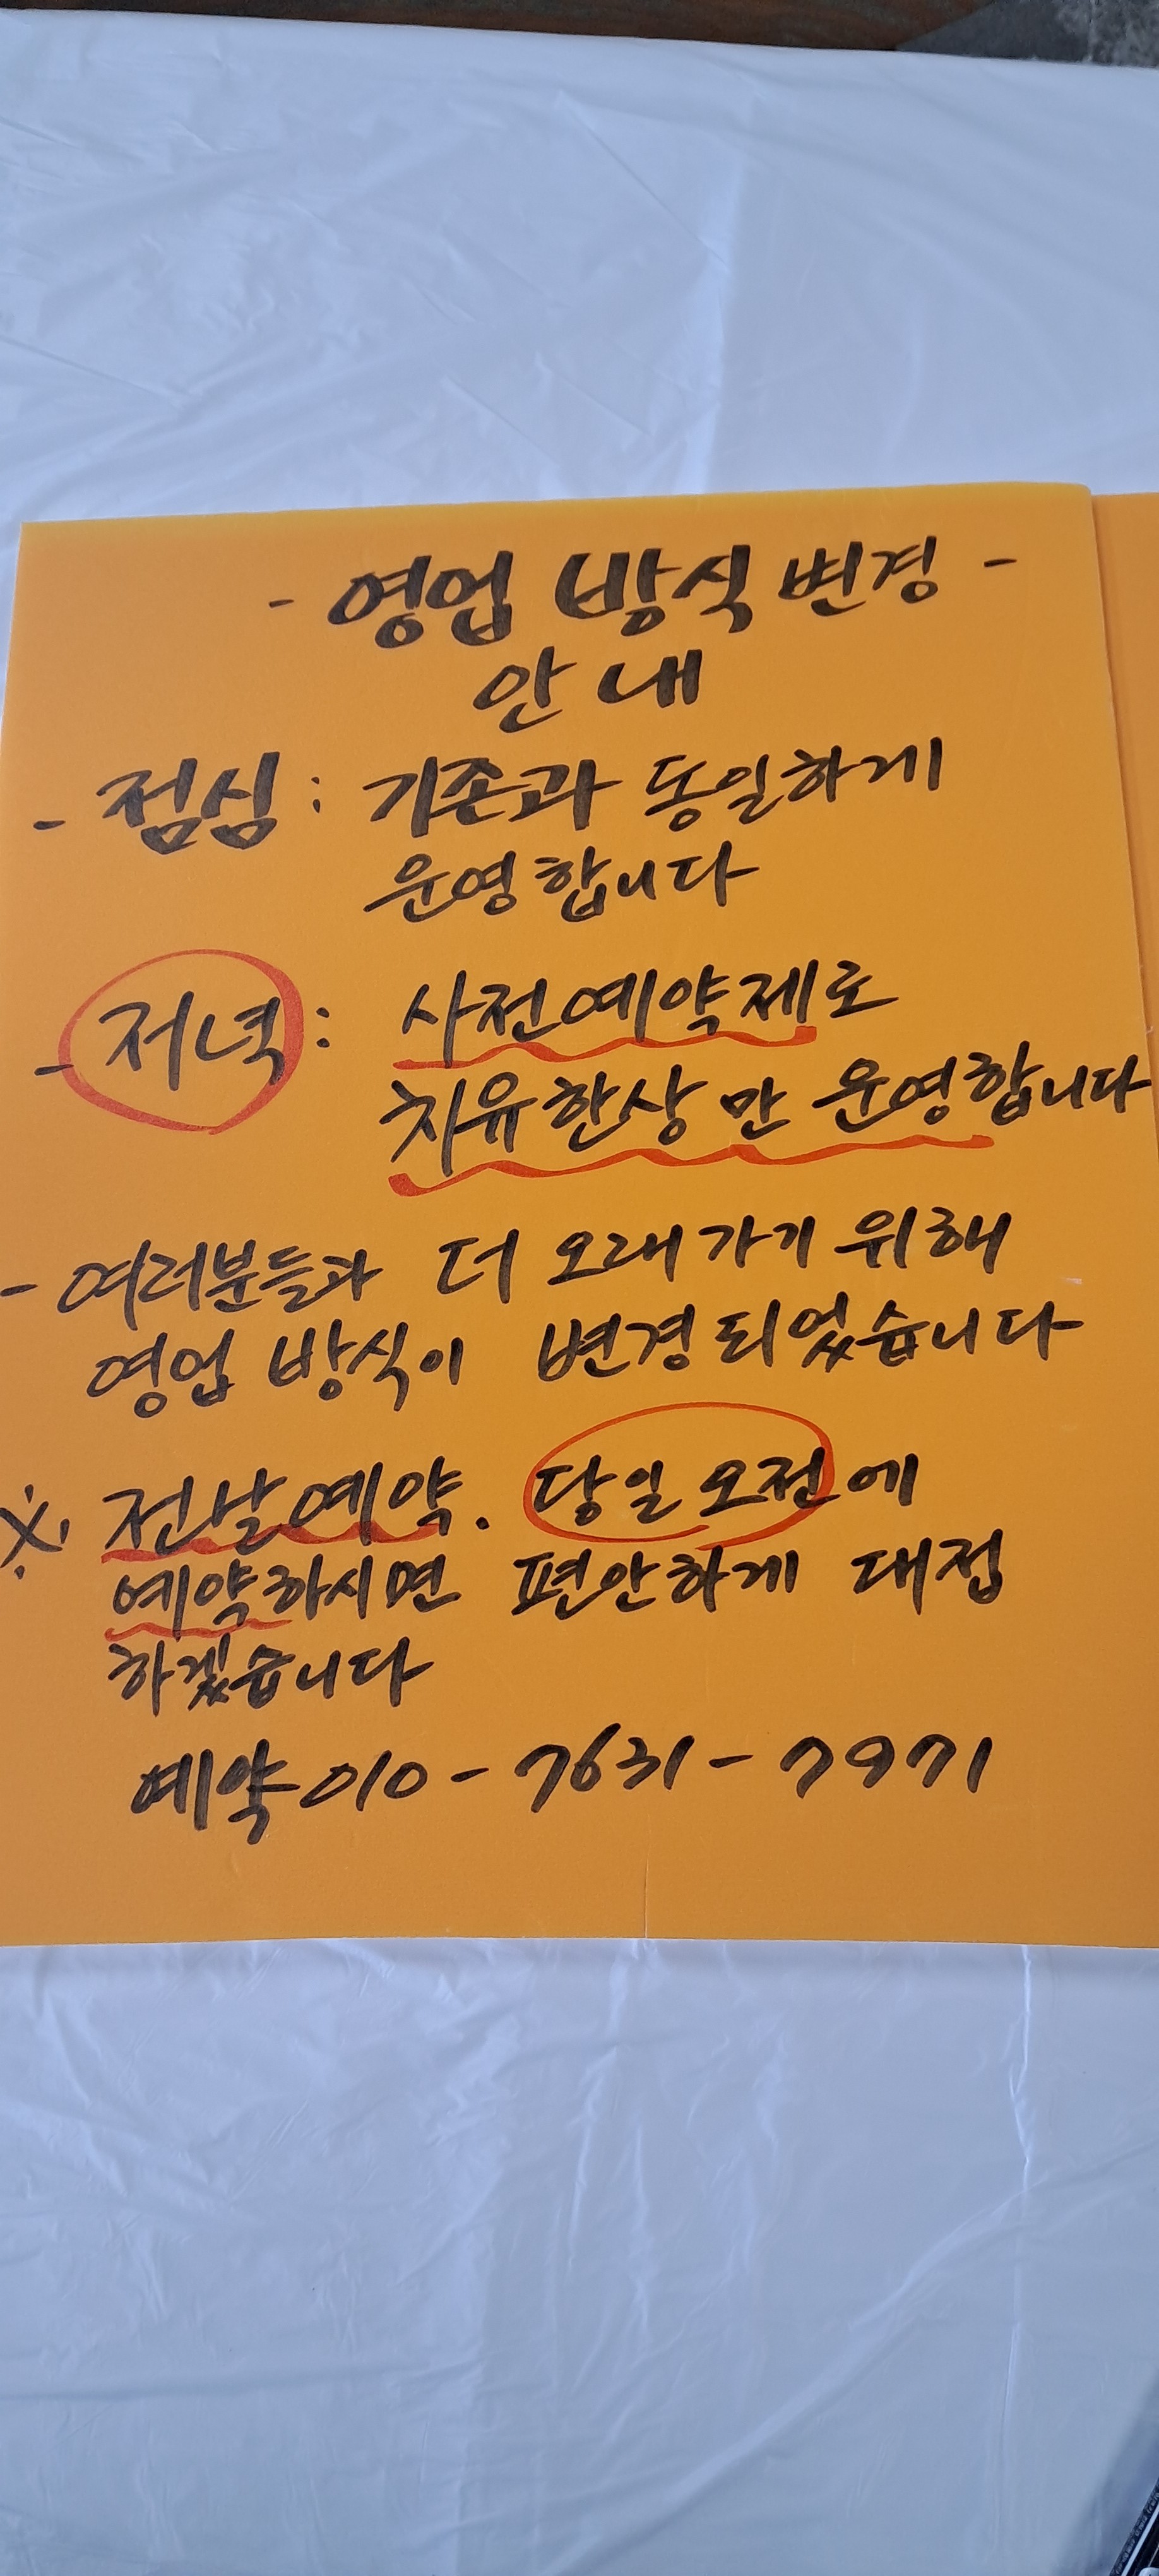 - 영업 방식 변경 -
안내
- 점심 : 기존과 동일하게
운영합니다
- 저녁 : 사전예약제로
치유한상 만 운영합니다
- 여러분들과 더 오래 가기 위해
영업 방식이 변경 되었습니다
※ 전날예약. 당일 오전에
예약하시면 편안하게 대접
하겠습니다
예약 010-7631-7971